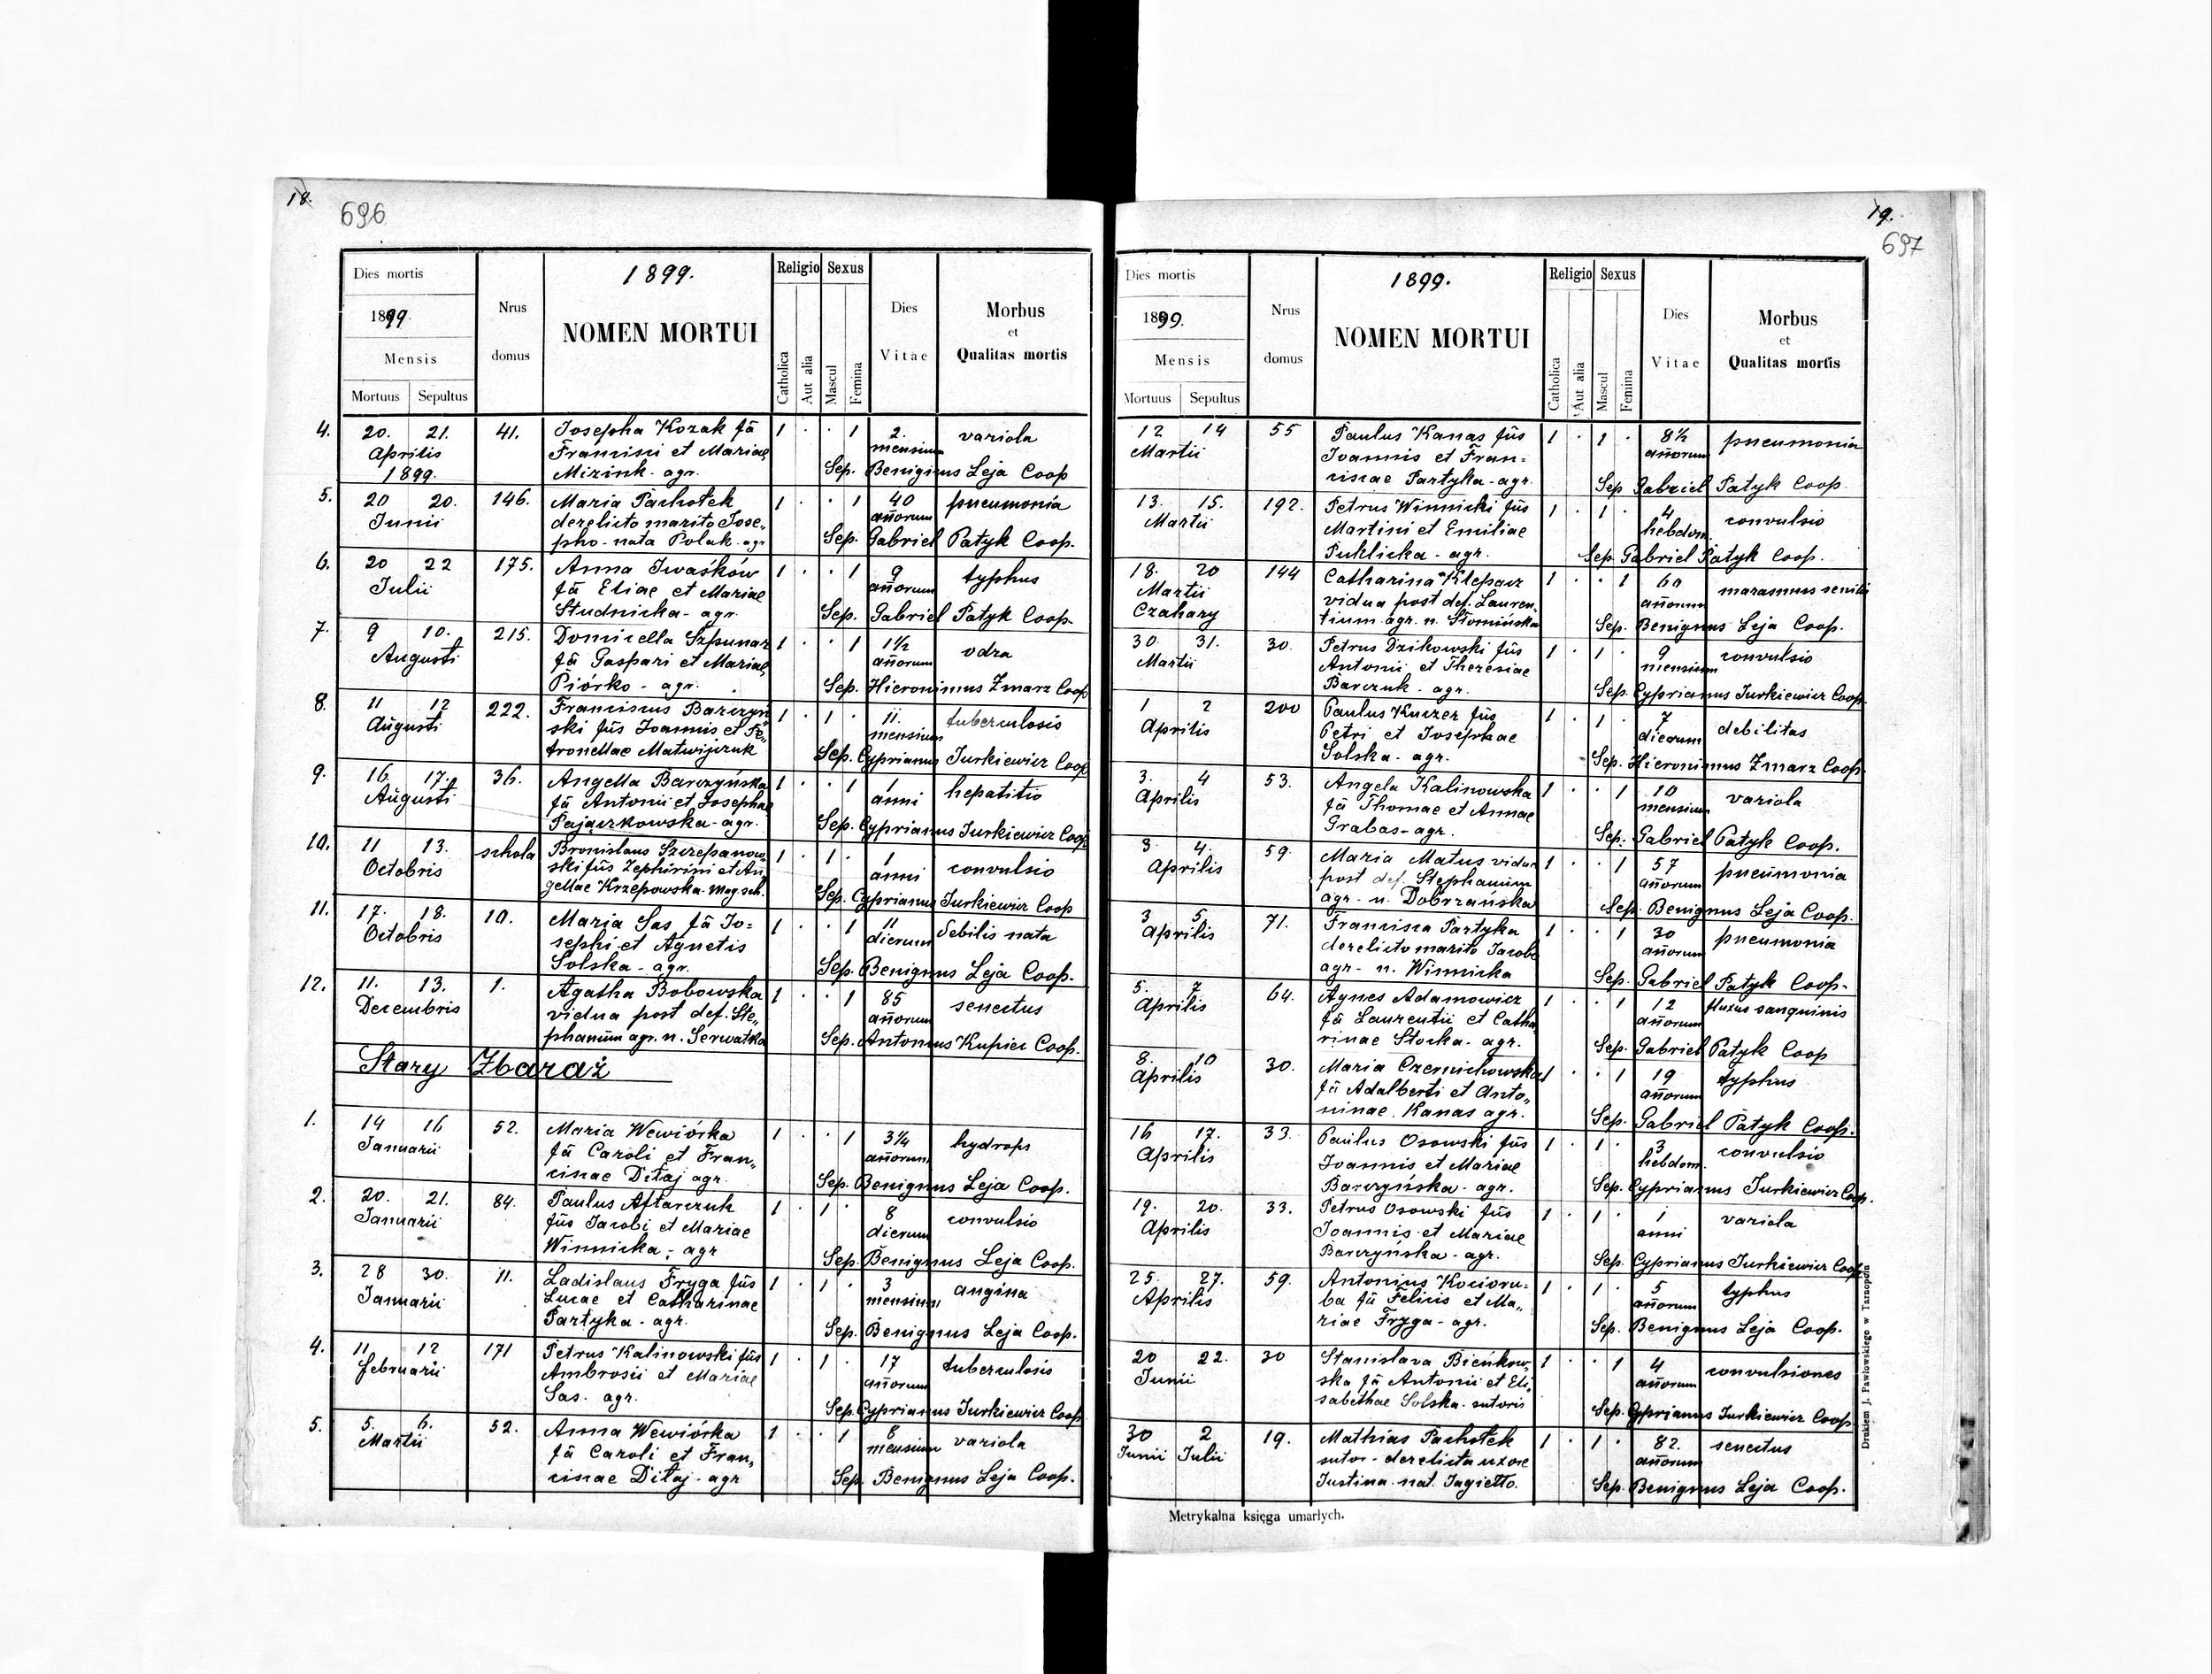 18.
696
Dies mortis
1899.
Mensis
Mortuus Sepultus
Nrus
domus
1899.
NOMEN MORTUI
Religio Sexus
Catholica
Aut alia
Mascul
Femina
Dies
Vitae
Morbus
et
Qualitas mortis
4. 20. 21. 41. Josepha Kozak fa 1 . . 1 2. variola
Aprilis Francisci et Mariae mensium
1899. Mizink. agr. Sep. Benignus Leja Coop
5. 20 20. 146. Maria Pachołek 1 . . 1 40 pneumonia
Junii derelicto marito Jose„ añorum
pho - nata Polak. agr Sep. Gabriel Patyk Coop.
6. 20 22 175. Anna Iwaśków 1 . . 1 9 typhus
Julii fa Eliae et Mariae añorum
Studnicka - agr. Sep. Gabriel Patyk Coop
7. 9 10. 215. Domicella Szpunar 1 . 1 1½ odra
Augusti fa Gaspari et Mariae añorum
Piórko - agr. Sep. Hieronimus Zmarz Coop
8. 11 12 222. Franciscus Barczyń 1 . 1 . 11. tuberculosis
Augusti ski fus Joannis et Pe„ mensium
tronellae Matwijczuk Sep. Cyprianus Jurkiewicz Coop
9. 16. 17. 36. Angella Barczyńska 1 . . 1 1 hepatitio
Augusti fa Antonii et Josephae anni
Pajaczkowska - agr. Sep. Cyprianus Jurkiewicz Coop
10. 11 13. schola Bronislaus Szczepanow„ 1 . 1 . 1 convulsio
Octobris ski fus Zephirini et An„ anni
gellae Krzepowska. Mag. sch. Sep. Cyprianus Jurkiewicz Coop
11. 17. 18. 10. Maria Sas fa Jo= 1 . . 1 11 debilis nata
Octobris sephi et Agnetis dierum
Solska - agr. Sep. Benignus Leja Coop.
12. 11. 13. 1. Agatha Bobowska 1 . . 1 85 senectus
Decembris vidua post def. Ste„ añorum
phanum agr. n. Serwatka Sep. Antonius Kupiec Coop.
Stary Zbaraż
1. 14 16 52. Maria Wewiórka 1 . . 1 3¼ hydrops
Januarii fa Caroli et Fran„ añorum
ciscae Ditaj agr. Sep. Benignus Leja Coop.
2. 20. 21. 84. Paulus Aftarczuk 1 . 1 . 8 convulsio
Januarii fus Jacobi et Mariae dierum
Winnicka - agr Sep. Benignus Leja Coop.
3. 28 30. 11. Ladislaus Fryga fus 1 . 1 . 3 angina
Januarii Lucae et Catharinae mensium
Partyka - agr. Sep. Benignus Leja Coop.
4. 11 12 171 Petrus Kalinowski fus 1 . 1 . 17 tuberculosis
februarii Ambrosii et Mariae añorum
Sas. agr. Sep. Cyprianus Jurkiewicz Coop
5. 5. 6. 52. Anna Wewiórka 1 . . 1 8 variola
Martii fa Caroli et Fran„ mensium
ciscae Ditaj - agr Sep. Benignus Leja Coop.
19.
697
Dies mortis
1899.
Mensis
Mortuus Sepultus
Nrus
domus
1899.
NOMEN MORTUI
Religio Sexus
Catholica
Aut alia
Mascul
Femina
Dies
Vitae
Morbus
et
Qualitas mortis
12 14 55 Paulus Kanas fus 1 . 1 . 8½ pneumonia
Martii Joannis et Fran= añorum
ciscae Partyka - agr. Sep Gabriel Patyk Coop.
13. 15. 192. Petrus Winnicki fus 1 . 1 . 4 convulsio
Martii Martini et Emiliae hebdom.
Puklicka - agr. Sep. Gabriel Patyk Coop.
18. 20 144 Catharina Klepacz 1 . . 1 60 marasmus senilis
Martii vidua post def. Lauren„ añorum
Czahary tium. agr. n. Słomińska Sep. Benignus Leja Coop.
30. 31. 30. Petrus Dzikowski fus 1 . 1 . 9 convulsio
Martii Antonii et Theresiae mensium
Barczuk - agr. Sep. Cyprianus Jurkiewicz Coop.
1 2 200 Paulus Kuczer fus 1 . 1 . 7 debilitas
Aprilis Petri et Josephae dierum
Solska - agr. Sep. Hieronimus Zmarz Coop.
3. 4 53. Angela Kalinowska 1 . . 1 10 variola
Aprilis fa Thomae et Annae mensium
Grabas - agr. Sep. Gabriel Patyk Coop.
3. 4. 59. Maria Matus vidua 1 . . 1 57 pneumonia
Aprilis post def. Stephanum añorum
agr. - n. Dobrzańska Sep. Benignus Leja Coop.
3 5. 71. Francisca Partyka 1 . . 1 30 pneumonia
Aprilis derelicto marito Jacobo añorum
agr - n. Winnicka Sep. Gabriel Patyk Coop.
5. 7 64. Agnes Adamowicz 1 . . 1 12 fluxus sanguinis
Aprilis fa Laurentii et Catha añorum
rinae Stocka - agr. Sep. Gabriel Patyk Coop
8. 10 30. Maria Czernichowska 1 . . 1 19 typhus
Aprilis fa Adalberti et Anto„ añorum
ninae. Kanas agr. Sep. Gabriel Patyk Coop.
16 17. 33. Paulus Osowski fus 1 . 1 . 3 convulsio
Aprilis Joannis et Mariae hebdom.
Barczyńska - agr. Sep. Cyprianus Jurkiewicz Coop.
19. 20. 33. Petrus Osowski fus 1 . 1 . 1 variola
Aprilis Joannis et Mariae anni
Barczyńska - agr. Sep. Cyprianus Jurkiewicz Coop
25. 27. 59. Antonius Kocioru= 1 . 1 . 5 typhus
Aprilis ba fa Felicis et Ma„ añorum
riae Fryga - agr. Sep. Benignus Leja Coop.
20 22. 30 Stanislava Bieńkow„ 1 . . 1 4 convulsiones
Junii ska fa Antonii et Eli„ añorum
sabethae Solska - sutoris Sep. Cyprianus Jurkiewicz Coop
30 2 19. Mathias Pachołek 1 . 1 . 82. senectus
Junii Julii sutor - derelicta uxore añorum
Justina nat. Jagiełło. Sep. Benignus Leja Coop.
Metrykalna księga umarłych.
Drukiem J. Pawłowskiego w Tarnopolu